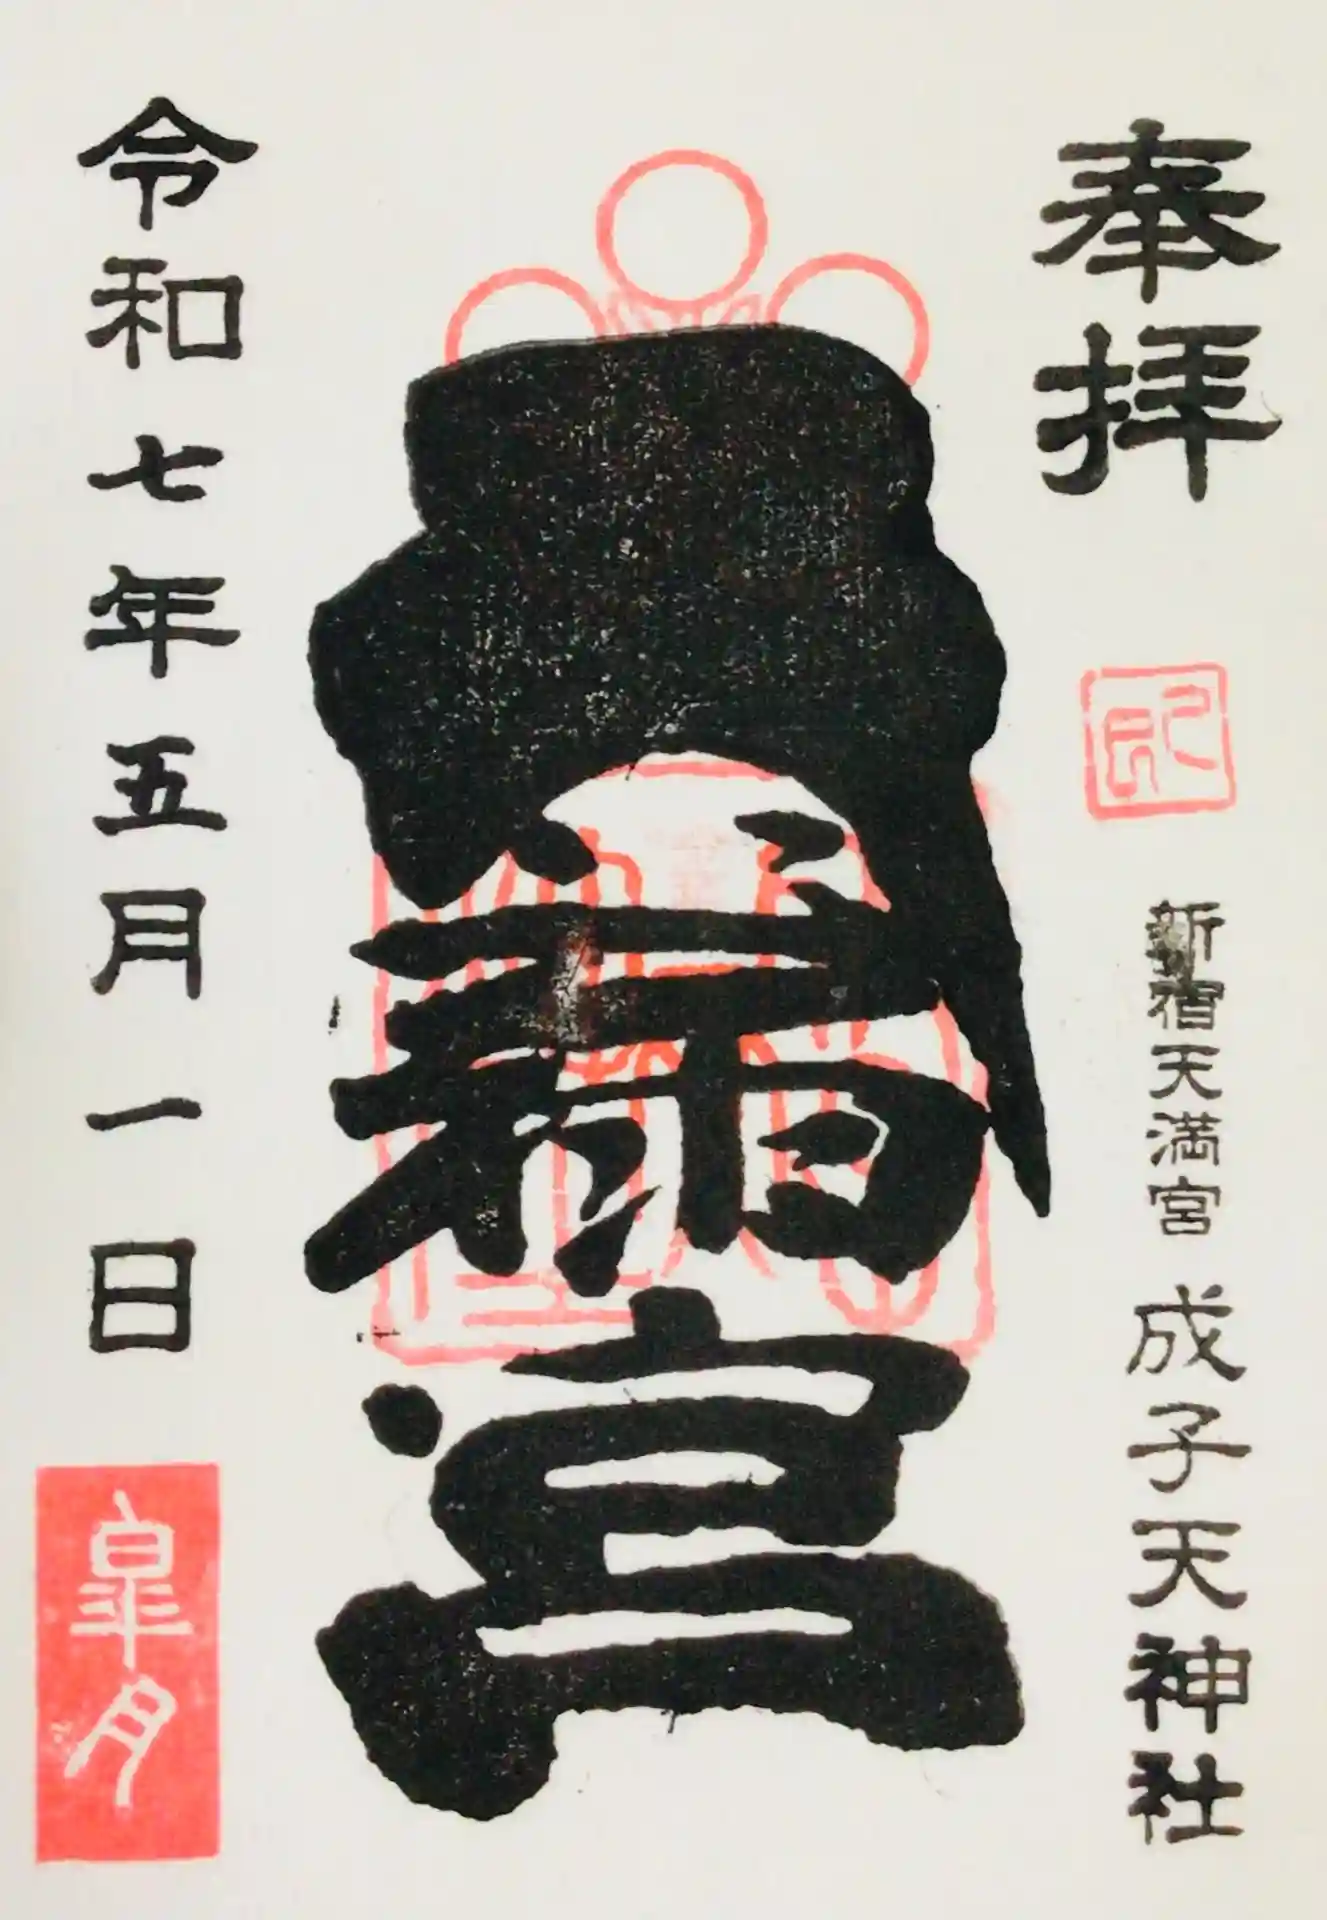 奉拝
印
新宿天満宮 成子天神社
宮
令和七年五月一日
皐月